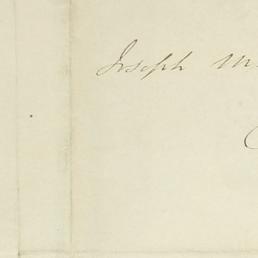 Joseph M